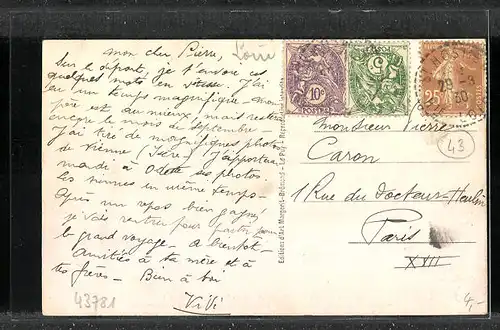 mon cher Pierre,
Sur le départ, je t'envoie ces
quelques mots en vitesse. J'ai
eu un temps magnifique - mon
père est au mieux, mais restera
encore le mois de septembre -
J'ai tiré de magnifiques photos
de Vienne (Isère) J'apporterai
mardi à Odette ses photos.
les siennes en même temps -
Après un repos bien gagné,
je vais rentrer pour partir pour
le grand voyage - A bientôt -
Amitiés à ta mère et à
tes frères - Bien à toi
ViVi
43781
Editions d'Art Margerit-Brémond - Le Puy - Reproduction interdite
10c
POSTES
25
28 -8
30
43
Monsieur Pierre
Caron
1 Rue du Docteur-
Paris
XVII
4,-